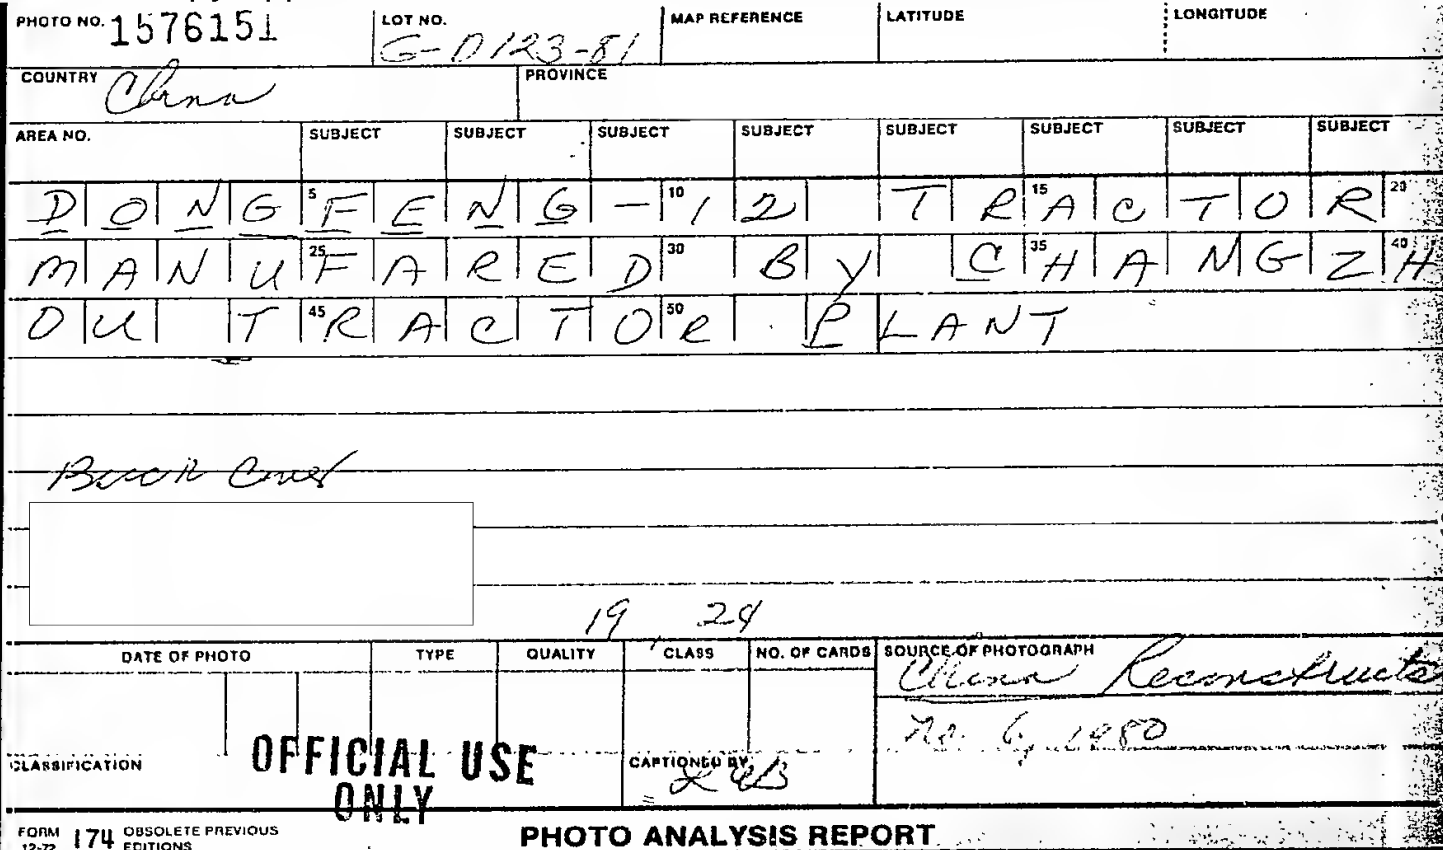 PHOTO NO. 1576151 LOT NO. G-D123-81 MAP REFERENCE LATITUDE LONGITUDE
COUNTRY China PROVINCE
AREA NO. SUBJECT SUBJECT SUBJECT SUBJECT SUBJECT SUBJECT SUBJECT SUBJECT
DONGFENG-12 TRACTOR
5 10 15 20
MANUFARED BY CHANGZH
25 30 35 40
OU TRACTOR PLANT
45 50
Back Cover
19, 24
DATE OF PHOTO TYPE QUALITY CLASS NO. OF CARDS SOURCE OF PHOTOGRAPH
China Reconstructs
No. 6, 1980
CLASSIFICATION OFFICIAL USE ONLY CAPTIONED BY
FORM 12-72 174 OBSOLETE PREVIOUS EDITIONS PHOTO ANALYSIS REPORT